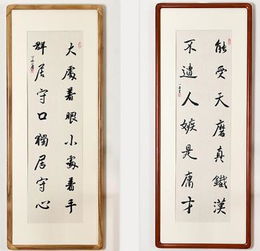 大處着眼小處着手
群居守口獨居守心
能受天磨真鐵漢
不遭人嫉是庸才